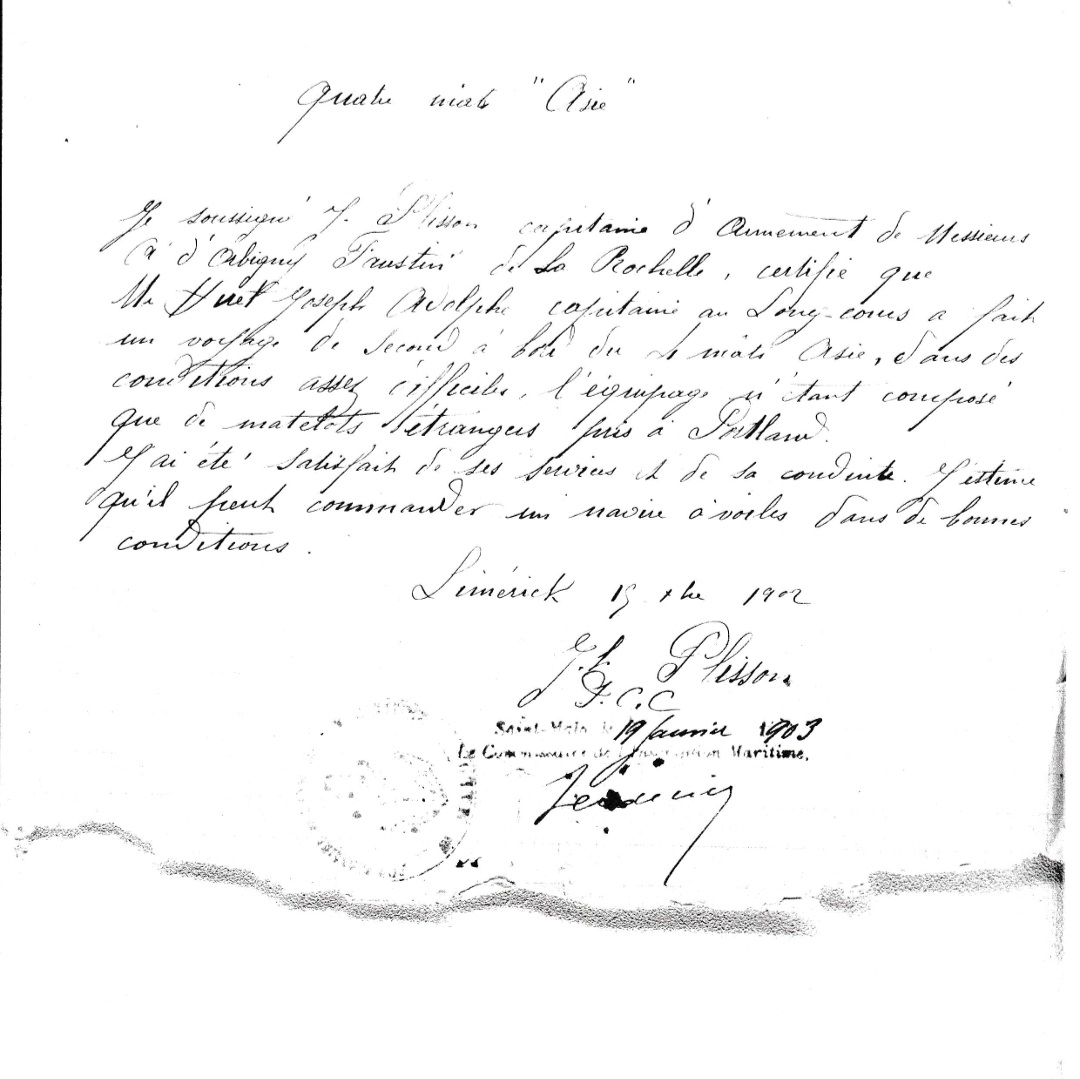 Quatre mâts "Asie"
Je soussigné J. Plisson capitaine d'armement de Messieurs
d'Orbigny Faustin de La Rochelle, certifie que
Mr Huet Joseph Adolphe capitaine au Long-cours a fait
un voyage de second à bord du 4 mâts Asie, dans des
conditions assez difficiles, l'équipage n'étant composé
que de matelots étrangers pris à Portland.
J'ai été satisfait de ses services et de sa conduite. J'estime
qu'il peut commander un navire à voiles dans de bonnes
conditions.
Limérick 15 xbre 1902
Plisson
F. C. C
Saint-Malo le 19 janvier 1903
Le Commissaire de l'Inscription Maritime,